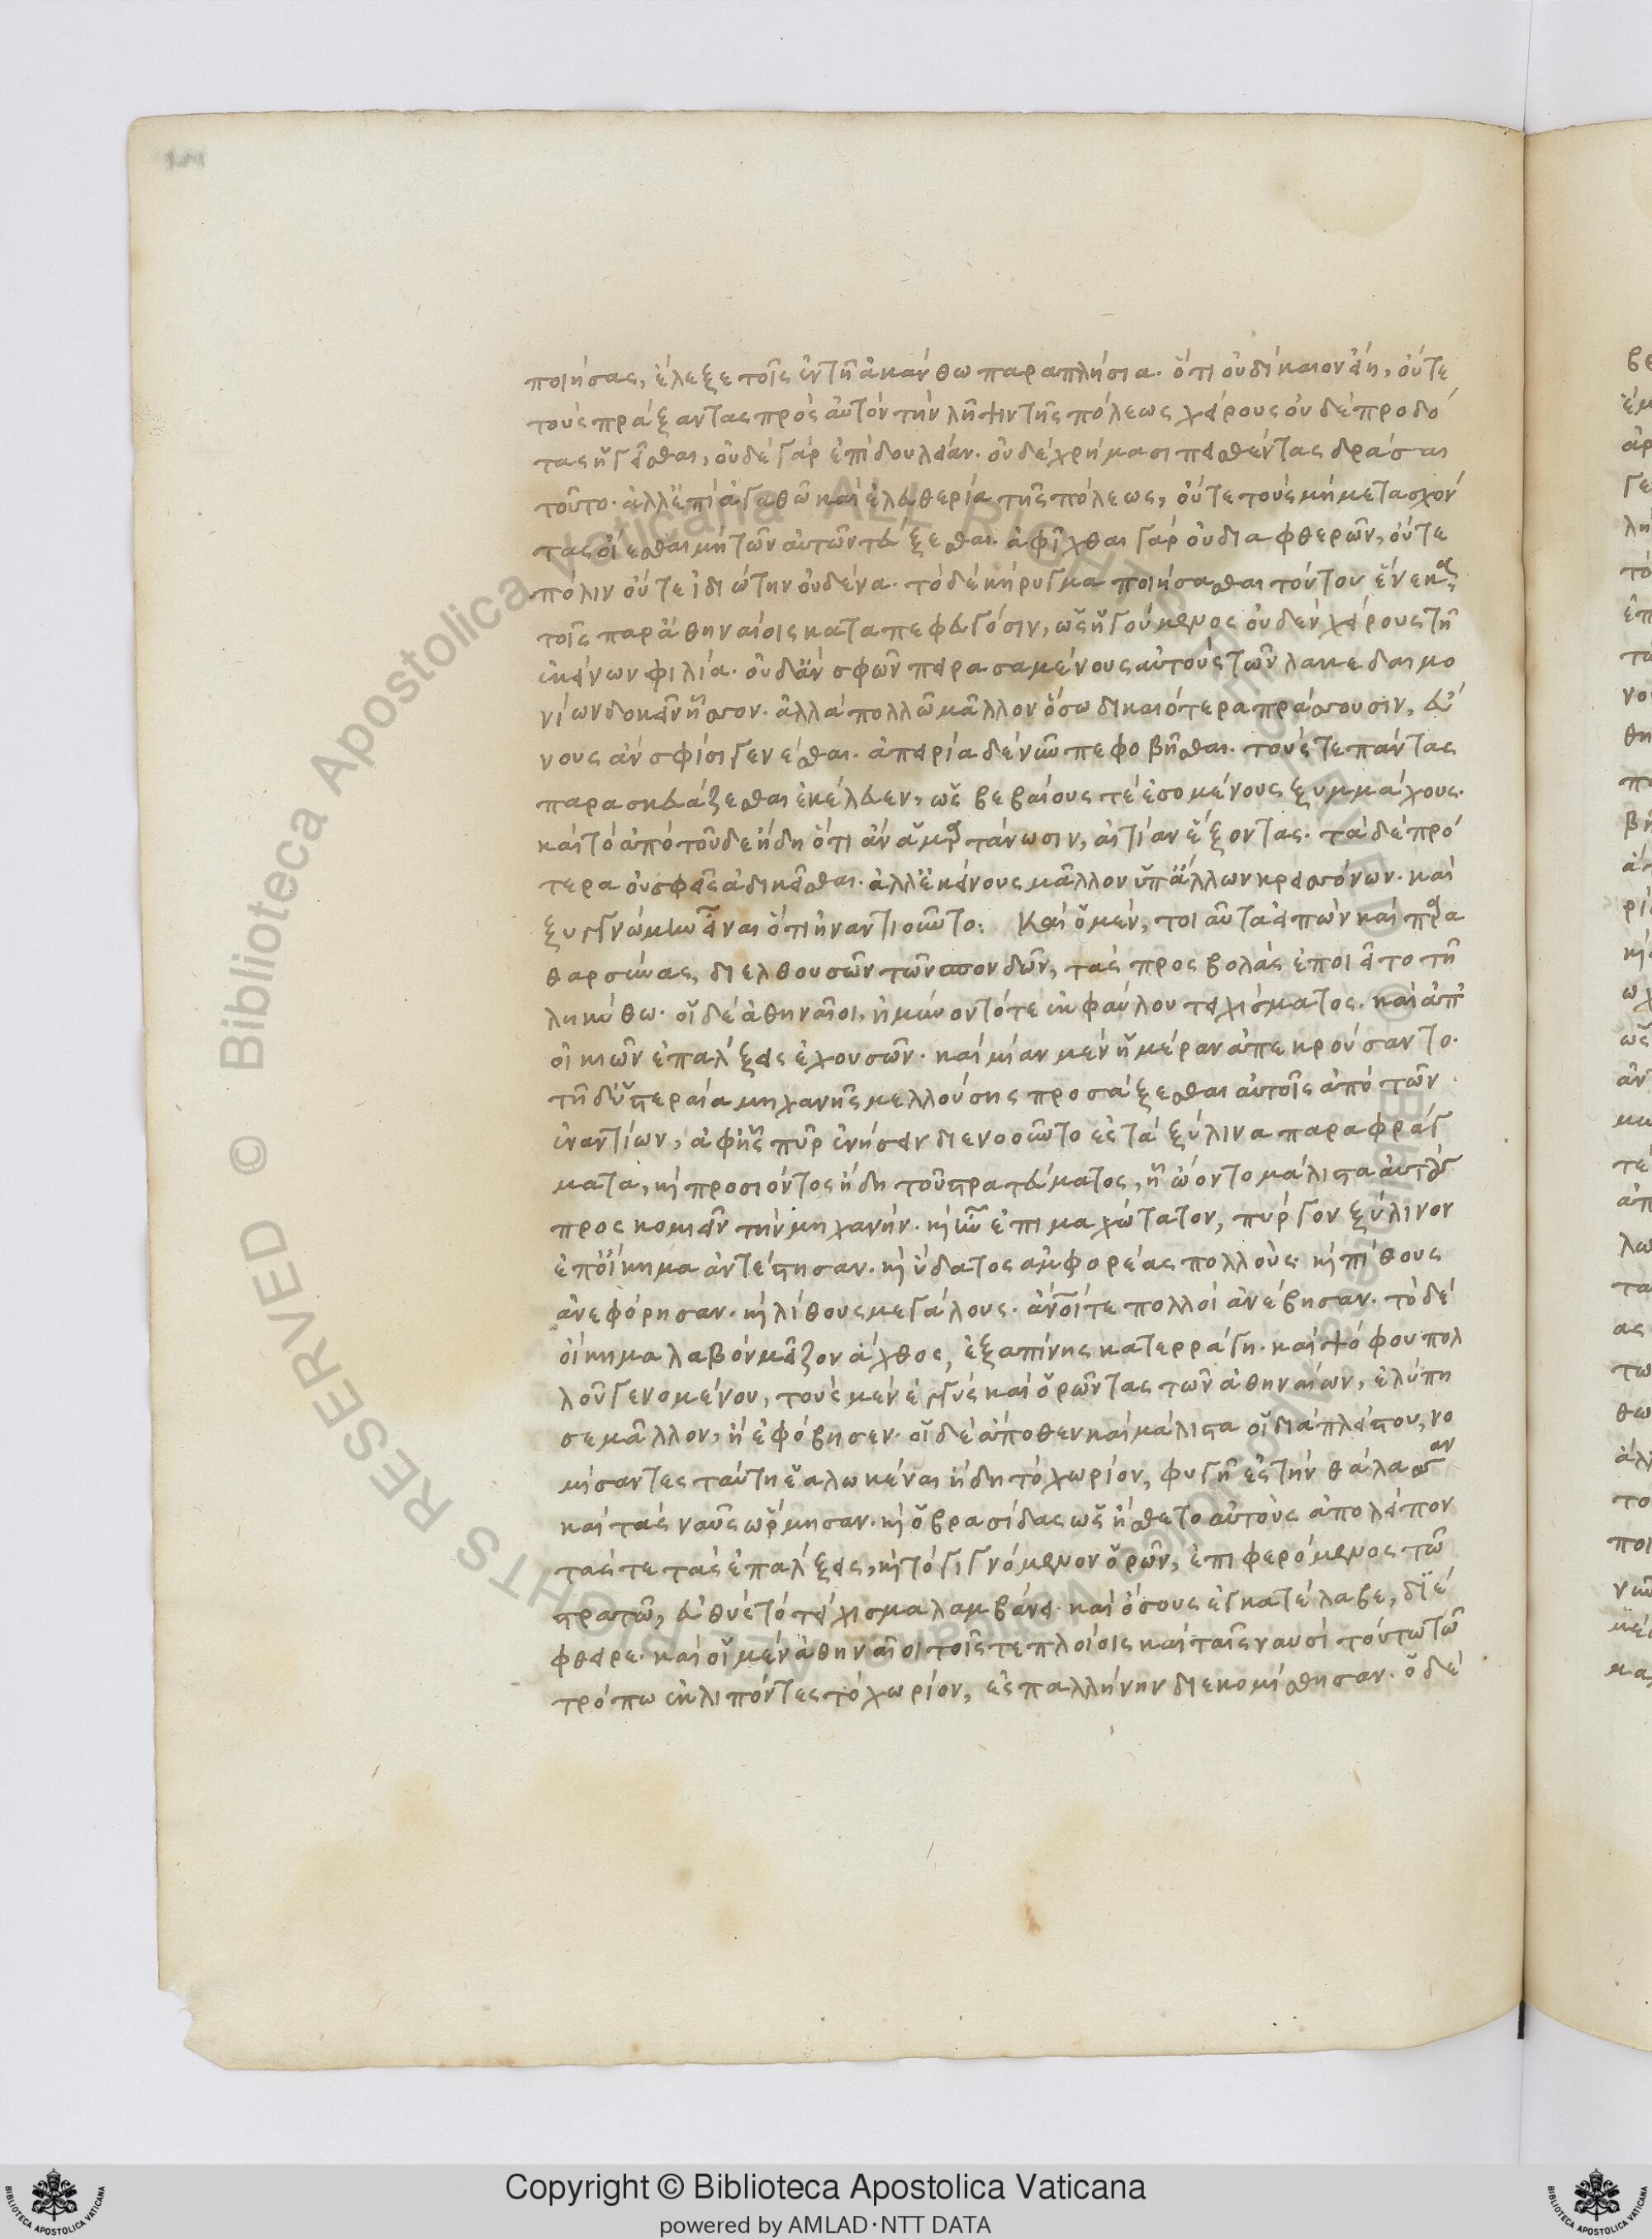 ποιήσας, ἔλεξε τοῖς ἐν τῇ ἀκάνθω παραπλήσια. ὅτι οὐ δίκαιον εἴη, οὔτε
τοὺς πράξαντας πρὸς αὐτὸν τὴν λῆψιν τῆς πόλεως χείρους οὐδὲ προδό
τας ἡγεῖσθαι, οὐδὲ γὰρ ἐπὶ δουλείαν. οὐδὲ χρήμασι πεισθέντας δράσαι
τοῦτο. ἀλλ' ἐπὶ ἀγαθῶ καὶ ἐλευθερία τῆς πόλεως, οὔτε τοὺς μὴ μετασχόν
τας οἴεσθαι μὴ τῶν αὐτῶν τεύξεσθαι. ἀφῖχθαι γὰρ οὐ διαφθερῶν, οὔτε
πόλιν οὔτε ἰδιώτην οὐδένα. τὸ δὲ κήρυγμα ποιήσασθαι τούτου ἕνεκα
τοῖς παρ' ἀθηναίοις καταπεφευγόσιν, ὡς ἡγούμενος οὐδὲν χείρους τῆ
ἐκείνων φιλία. οὐδ' ἂν σφῶν πειρασαμένους αὐτοὺς τῶν λακεδαιμο
νίων δοκεῖν ἧσσον. ἀλλὰ πολλῶ μᾶλλον ὅσω δικαιότερα πράσσουσιν, εὔ
νους ἂν σφίσι γενέσθαι. ἀπειρία δὲ νῦν πεφοβῆσθαι. τούς τε πάντας
παρασκευάζεσθαι ἐκέλευεν, ὡς βεβαίους τὲ ἐσομένους ξυμμάχους.
καὶ τὸ ἀπὸ τοῦδε ἤδη ὅτι ἂν ἁμαρτάνωσιν, αἰτίαν ἕξοντας. τὰ δὲ πρό
τερα οὐ σφεῖς ἀδικεῖσθαι. ἀλλ' ἐκείνους μᾶλλον ὑπ' ἄλλων κρεισσόνων. καὶ
ξυγγνώμην εἶναι ὅτι ἠναντιοῦντο: Καὶ ὁ μὲν, τοιαῦτα εἰπὼν καὶ παρα
θαρσύνας, διελθουσῶν τῶν σπονδῶν, τὰς προσβολὰς ἐποιεῖτο τῆ
ληκύθω. οἱ δὲ ἀθηναῖοι, ἠμύνοντό τε ἐκ φαύλου τειχίσματος. καὶ ἀπ'
οἰκιῶν ἐπάλξεις ἐχουσῶν. καὶ μίαν μὲν ἡμέραν ἀπεκρούσαντο.
τῆ δ' ὑστεραία μηχανῆς μελλούσης προσάξεσθαι αὐτοῖς ἀπὸ τῶν
ἐναντίων, ἀφ' ἧς πῦρ ἐνήσειν διενοοῦντο ἐς τὰ ξύλινα παραφράγ
ματα, κὶ προσιόντος ἤδη τοῦ στρατεύματος, ἧ ὤοντο μάλιστα αὐτοὺς
προσκομιεῖν τὴν μηχανήν. κὶ ἦν ἐπιμαχώτατον, πύργον ξύλινον
ἐπ' οἴκημα ἀντέστησαν. κὶ ὕδατος ἀμφορέας πολλοὺς κὶ πίθους
ἀνεφόρησαν. κὶ λίθους μεγάλους. ἄνοί τε πολλοὶ ἀνέβησαν. τὸ δὲ
οἴκημα λαβὸν μεῖζον ἄχθος, ἐξαπίνης κατερράγη. καὶ ψόφου πολ
λοῦ γενομένου, τοὺς μὲν ἐγγὺς καὶ ὁρῶντας τῶν ἀθηναίων, ἐλύπη
σε μᾶλλον, ἢ ἐφόβησεν. οἱ δὲ ἄποθεν καὶ μάλιστα οἱ διὰ πλείστου, νο
μίσαντες ταύτη ἑαλωκέναι ἤδη τὸ χωρίον, φυγῆ ἐς τὴν θάλασσαν
καὶ τὰς ναῦς ὥρμησαν. κὶ ὁ βρασίδας ὡς ἤσθετο αὐτοὺς ἀπολείπον
τάς τε τὰς ἐπάλξεις, κὶ τὸ γιγνόμενον ὁρῶν, ἐπιφερόμενος τῶ
στρατῶ, εὐθὺς τὸ τείχισμα λαμβάνει. καὶ ὅσους ἐγκατέλαβε, διέ
φθειρε. καὶ οἱ μὲν ἀθηναῖοι τοῖς τε πλοίοις καὶ ταῖς ναυσὶ τούτω τῶ
τρόπω ἐκλιπόντες τὸ χωρίον, ἐς παλλήνην διεκομίσθησαν. ὁ δὲ
Copyright © Biblioteca Apostolica Vaticana
powered by AMLAD·NTT DATA